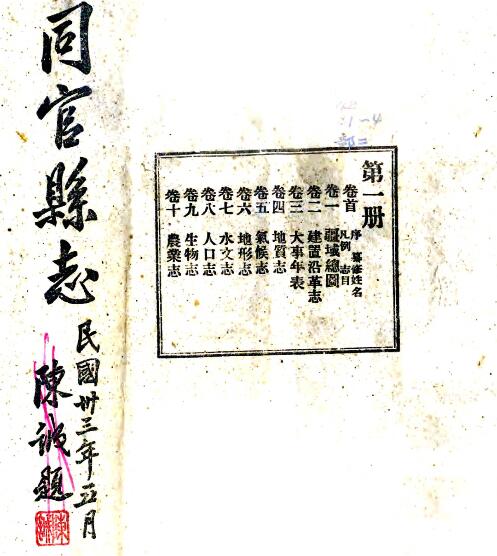 同官縣志
民國卅三年五月
陳誠題
1~4
第一册
卷首 序 纂修姓名
凡例 志目
卷一 疆域總圖
卷二 建置沿革志
卷三 大事年表
卷四 地質志
卷五 氣候志
卷六 地形志
卷七 水文志
卷八 人口志
卷九 生物志
卷十 農業志